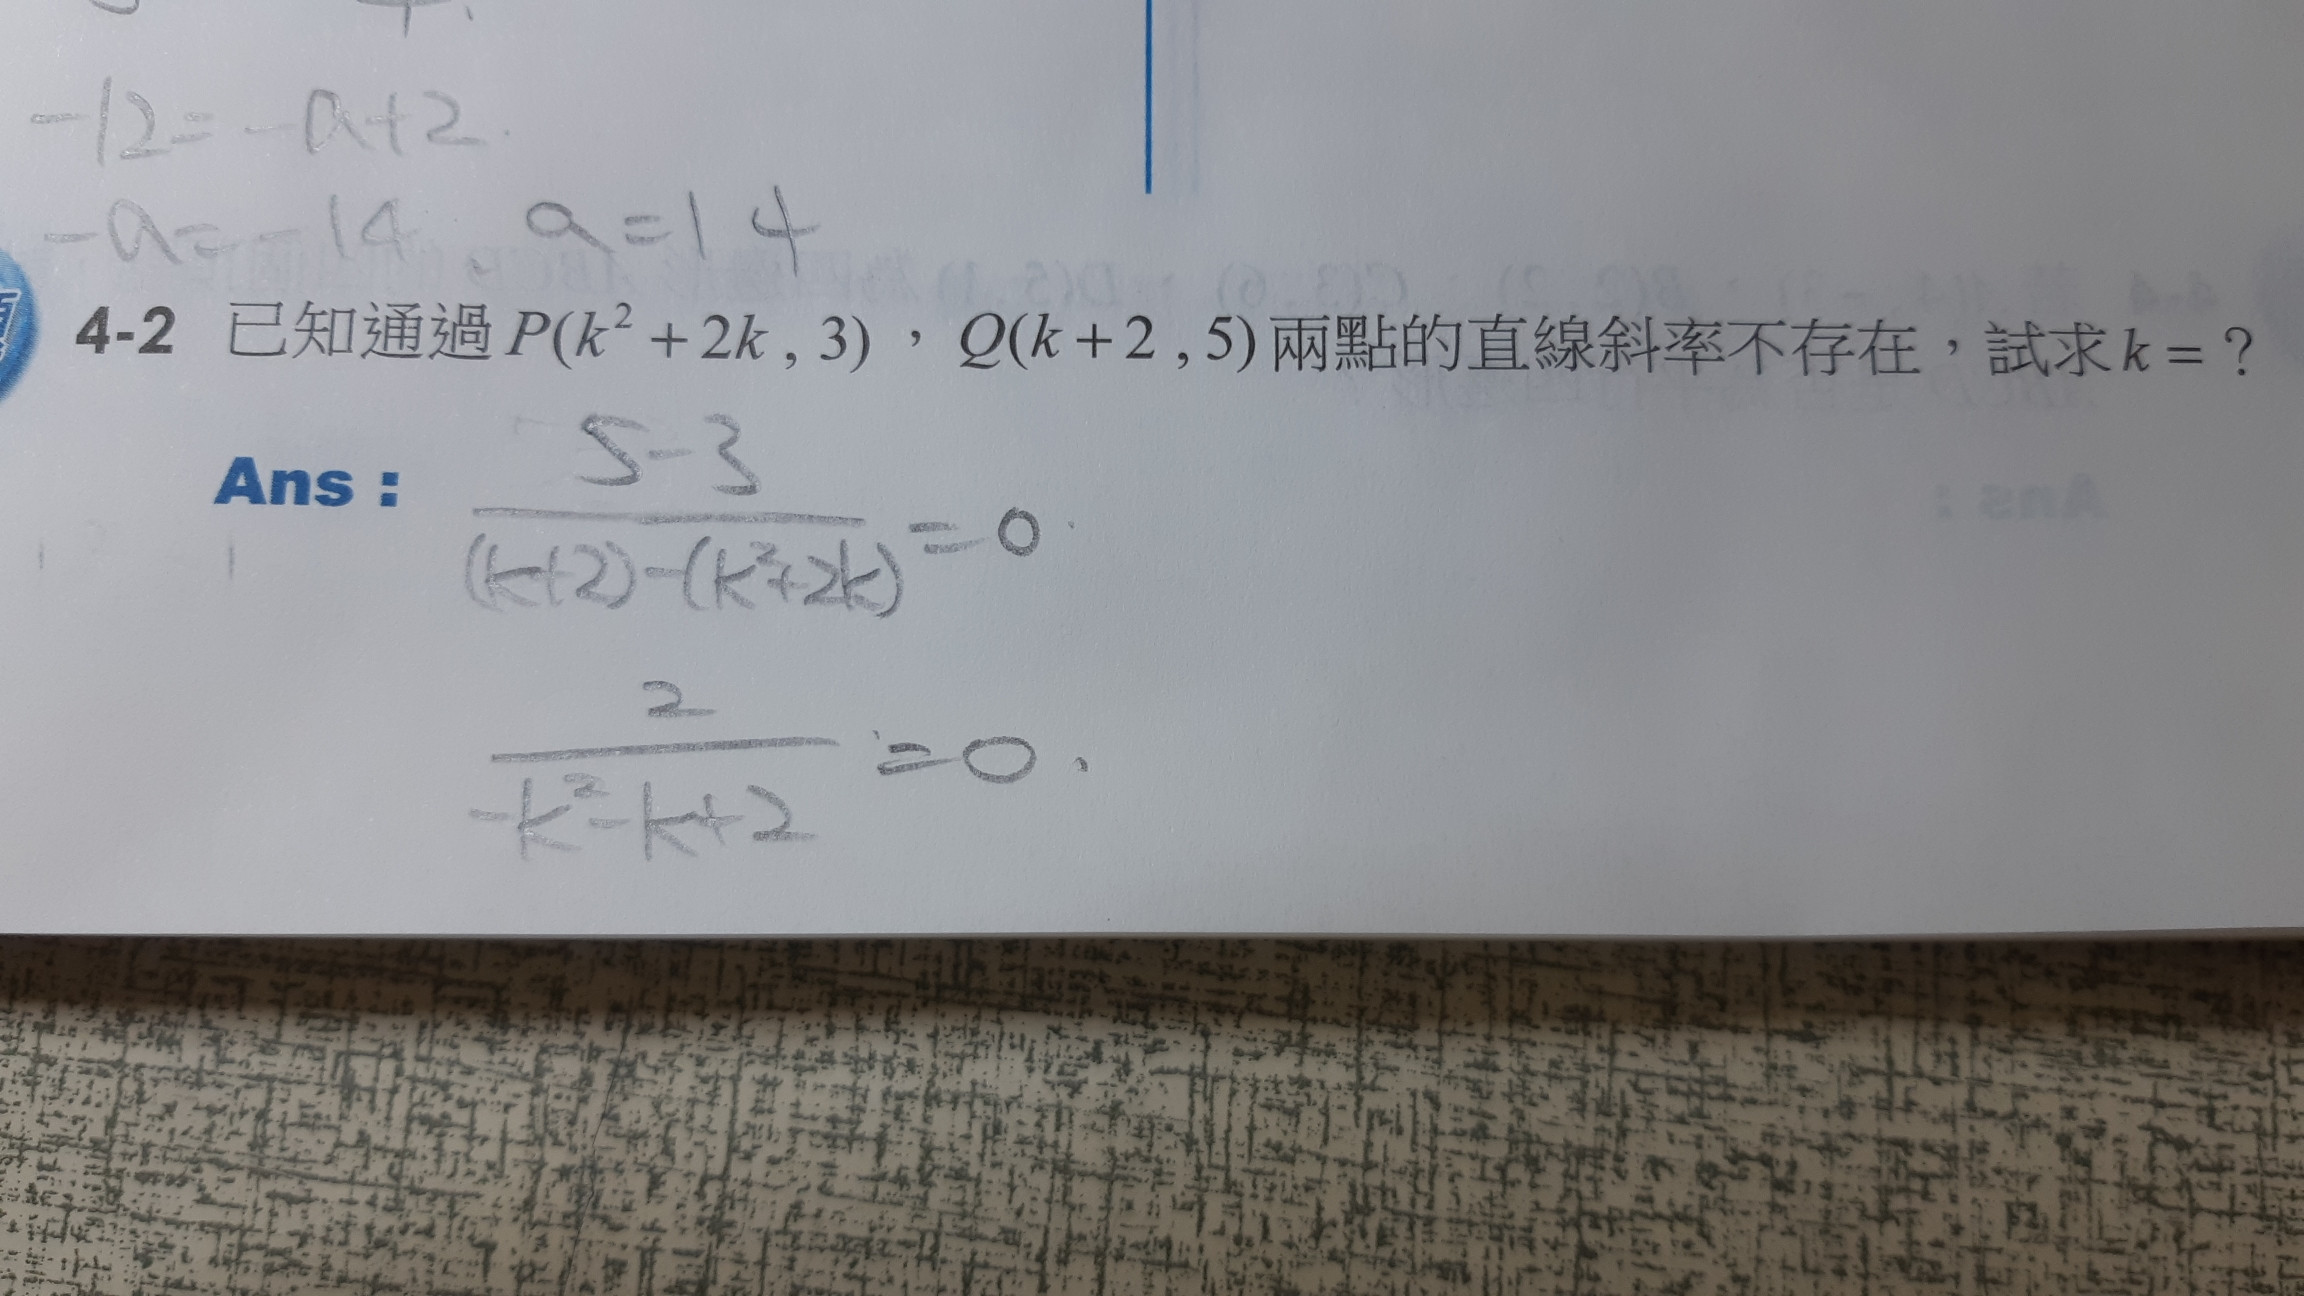 -12=-a+2.
-a=-14, a=14
題 4-2 已知通過 P(k²+2k , 3) , Q(k+2 , 5) 兩點的直線斜率不存在,試求 k = ?
Ans :
5-3
(k+2)-(k²+2k) =0
2
-k²-k+2 =0.